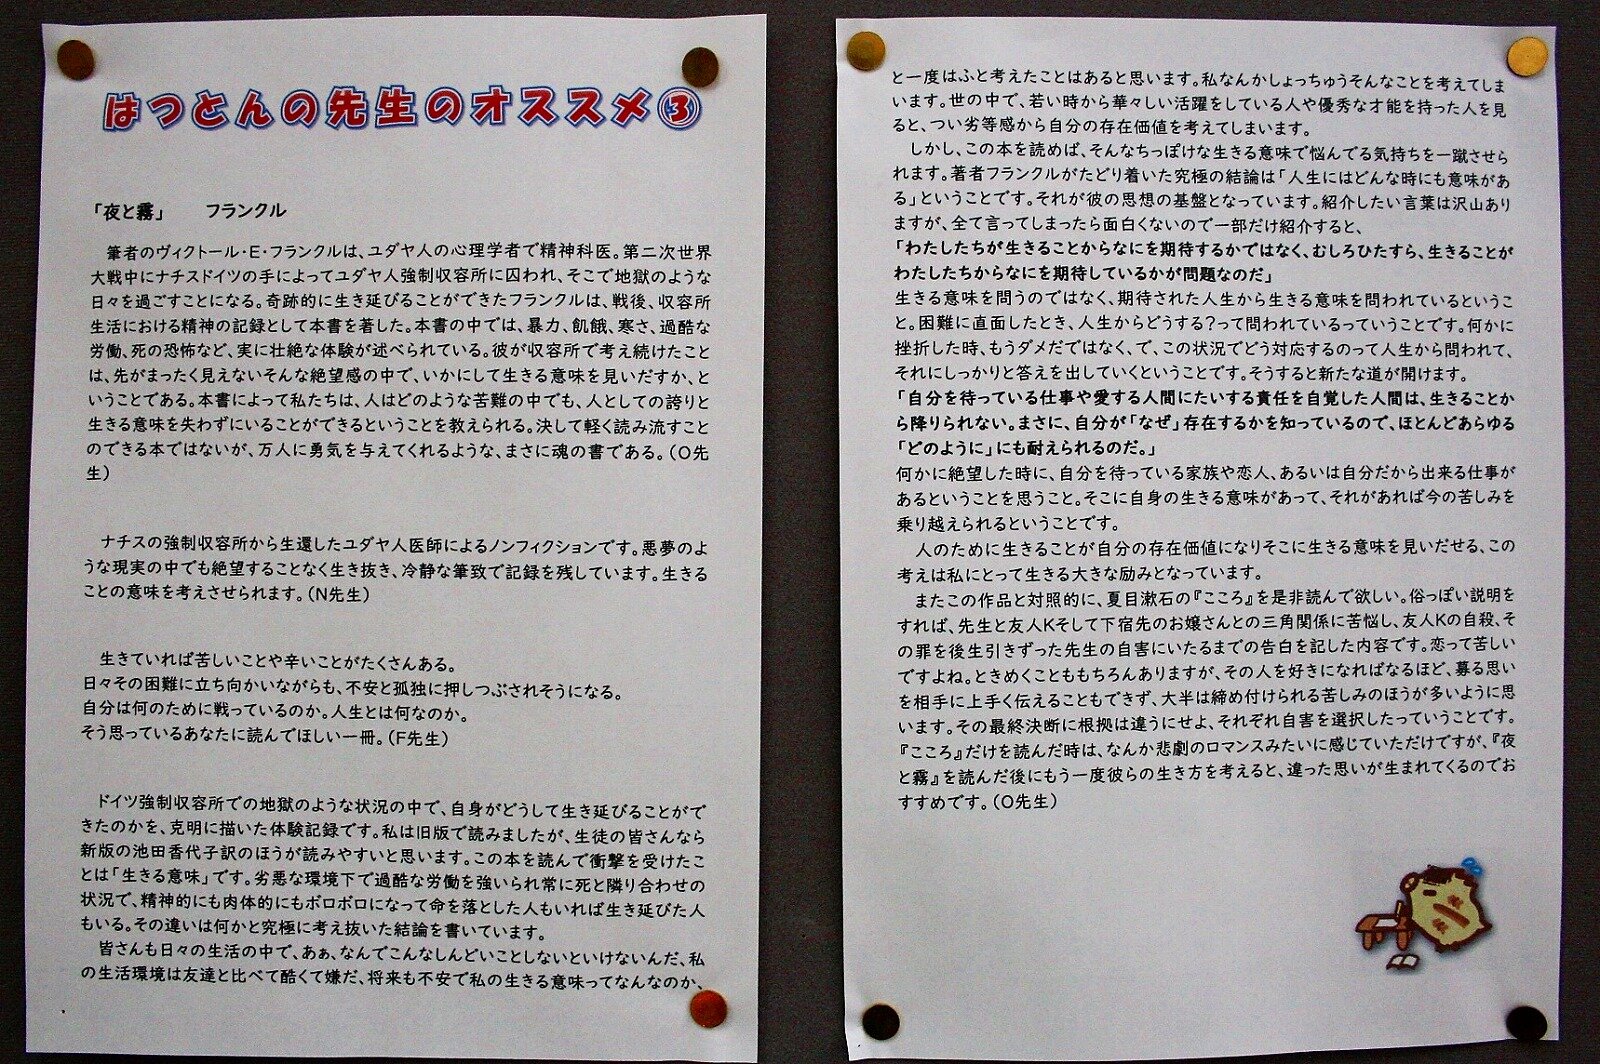 はつとんの先生のオススメ③
「夜と霧」　　フランクル
　筆者のヴィクトール・E・フランクルは、ユダヤ人の心理学者で精神科医。第二次世界
大戦中にナチスドイツの手によってユダヤ人強制収容所に囚われ、そこで地獄のような
日々を過ごすことになる。奇跡的に生き延びることができたフランクルは、戦後、収容所
生活における精神の記録として本書を著した。本書の中では、暴力、飢餓、寒さ、過酷な
労働、死の恐怖など、実に壮絶な体験が述べられている。彼が収容所で考え続けたこと
は、先がまったく見えないそんな絶望感の中で、いかにして生きる意味を見いだすか、と
いうことである。本書によって私たちは、人はどのような苦難の中でも、人としての誇りと
生きる意味を失わずにいることができるということを教えられる。決して軽く読み流すこと
のできる本ではないが、万人に勇気を与えてくれるような、まさに魂の書である。（O先
生）
　ナチスの強制収容所から生還したユダヤ人医師によるノンフィクションです。悪夢のよ
うな現実の中でも絶望することなく生き抜き、冷静な筆致で記録を残しています。生きる
ことの意味を考えさせられます。（N先生）
　生きていれば苦しいことや辛いことがたくさんある。
日々その困難に立ち向かいながらも、不安と孤独に押しつぶされそうになる。
自分は何のために戦っているのか。人生とは何なのか。
そう思っているあなたに読んでほしい一冊。（F先生）
　ドイツ強制収容所での地獄のような状況の中で、自身がどうして生き延びることがで
きたのかを、克明に描いた体験記録です。私は旧版で読みましたが、生徒の皆さんなら
新版の池田香代子訳のほうが読みやすいと思います。この本を読んで衝撃を受けたこ
とは「生きる意味」です。劣悪な環境下で過酷な労働を強いられ常に死と隣り合わせの
状況で、精神的にも肉体的にもボロボロになって命を落とした人もいれば生き延びた人
もいる。その違いは何かと究極に考え抜いた結論を書いています。
　皆さんも日々の生活の中で、あぁ、なんでこんなしんどいことしないといけないんだ、私
の生活環境は友達と比べて酷くて嫌だ、将来も不安で私の生きる意味ってなんなのか、
と一度はふと考えたことはあると思います。私なんかしょっちゅうそんなことを考えてしま
います。世の中で、若い時から華々しい活躍をしている人や優秀な才能を持った人を見
ると、つい劣等感から自分の存在価値を考えてしまいます。
　しかし、この本を読めば、そんなちっぽけな生きる意味で悩んでる気持ちを一蹴させら
れます。著者フランクルがたどり着いた究極の結論は「人生にはどんな時にも意味があ
る」ということです。それが彼の思想の基盤となっています。紹介したい言葉は沢山あり
ますが、全て言ってしまったら面白くないので一部だけ紹介すると、
「わたしたちが生きることからなにを期待するかではなく、むしろひたすら、生きることが
わたしたちからなにを期待しているかが問題なのだ」
生きる意味を問うのではなく、期待された人生から生きる意味を問われているというこ
と。困難に直面したとき、人生からどうする？って問われているっていうことです。何かに
挫折した時、もうダメだではなく、で、この状況でどう対応するのって人生から問われて、
それにしっかりと答えを出していくということです。そうすると新たな道が開けます。
「自分を待っている仕事や愛する人間にたいする責任を自覚した人間は、生きることか
ら降りられない。まさに、自分が「なぜ」存在するかを知っているので、ほとんどあらゆる
「どのように」にも耐えられるのだ。」
何かに絶望した時に、自分を待っている家族や恋人、あるいは自分だから出来る仕事が
あるということを思うこと。そこに自身の生きる意味があって、それがあれば今の苦しみを
乗り越えられるということです。
　人のために生きることが自分の存在価値になりそこに生きる意味を見いだせる、この
考えは私にとって生きる大きな励みとなっています。
　またこの作品と対照的に、夏目漱石の『こころ』を是非読んで欲しい。俗っぽい説明を
すれば、先生と友人Kそして下宿先のお嬢さんとの三角関係に苦悩し、友人Kの自殺、そ
の罪を後生引きずった先生の自害にいたるまでの告白を記した内容です。恋って苦しい
ですよね。ときめくことももちろんありますが、その人を好きになればなるほど、募る思い
を相手に上手く伝えることもできず、大半は締め付けられる苦しみのほうが多いように思
います。その最終決断に根拠は違うにせよ、それぞれ自害を選択したっていうことです。
『こころ』だけを読んだ時は、なんか悲劇のロマンスみたいに感じていただけですが、『夜
と霧』を読んだ後にもう一度彼らの生き方を考えると、違った思いが生まれてくるのでお
すすめです。（O先生）